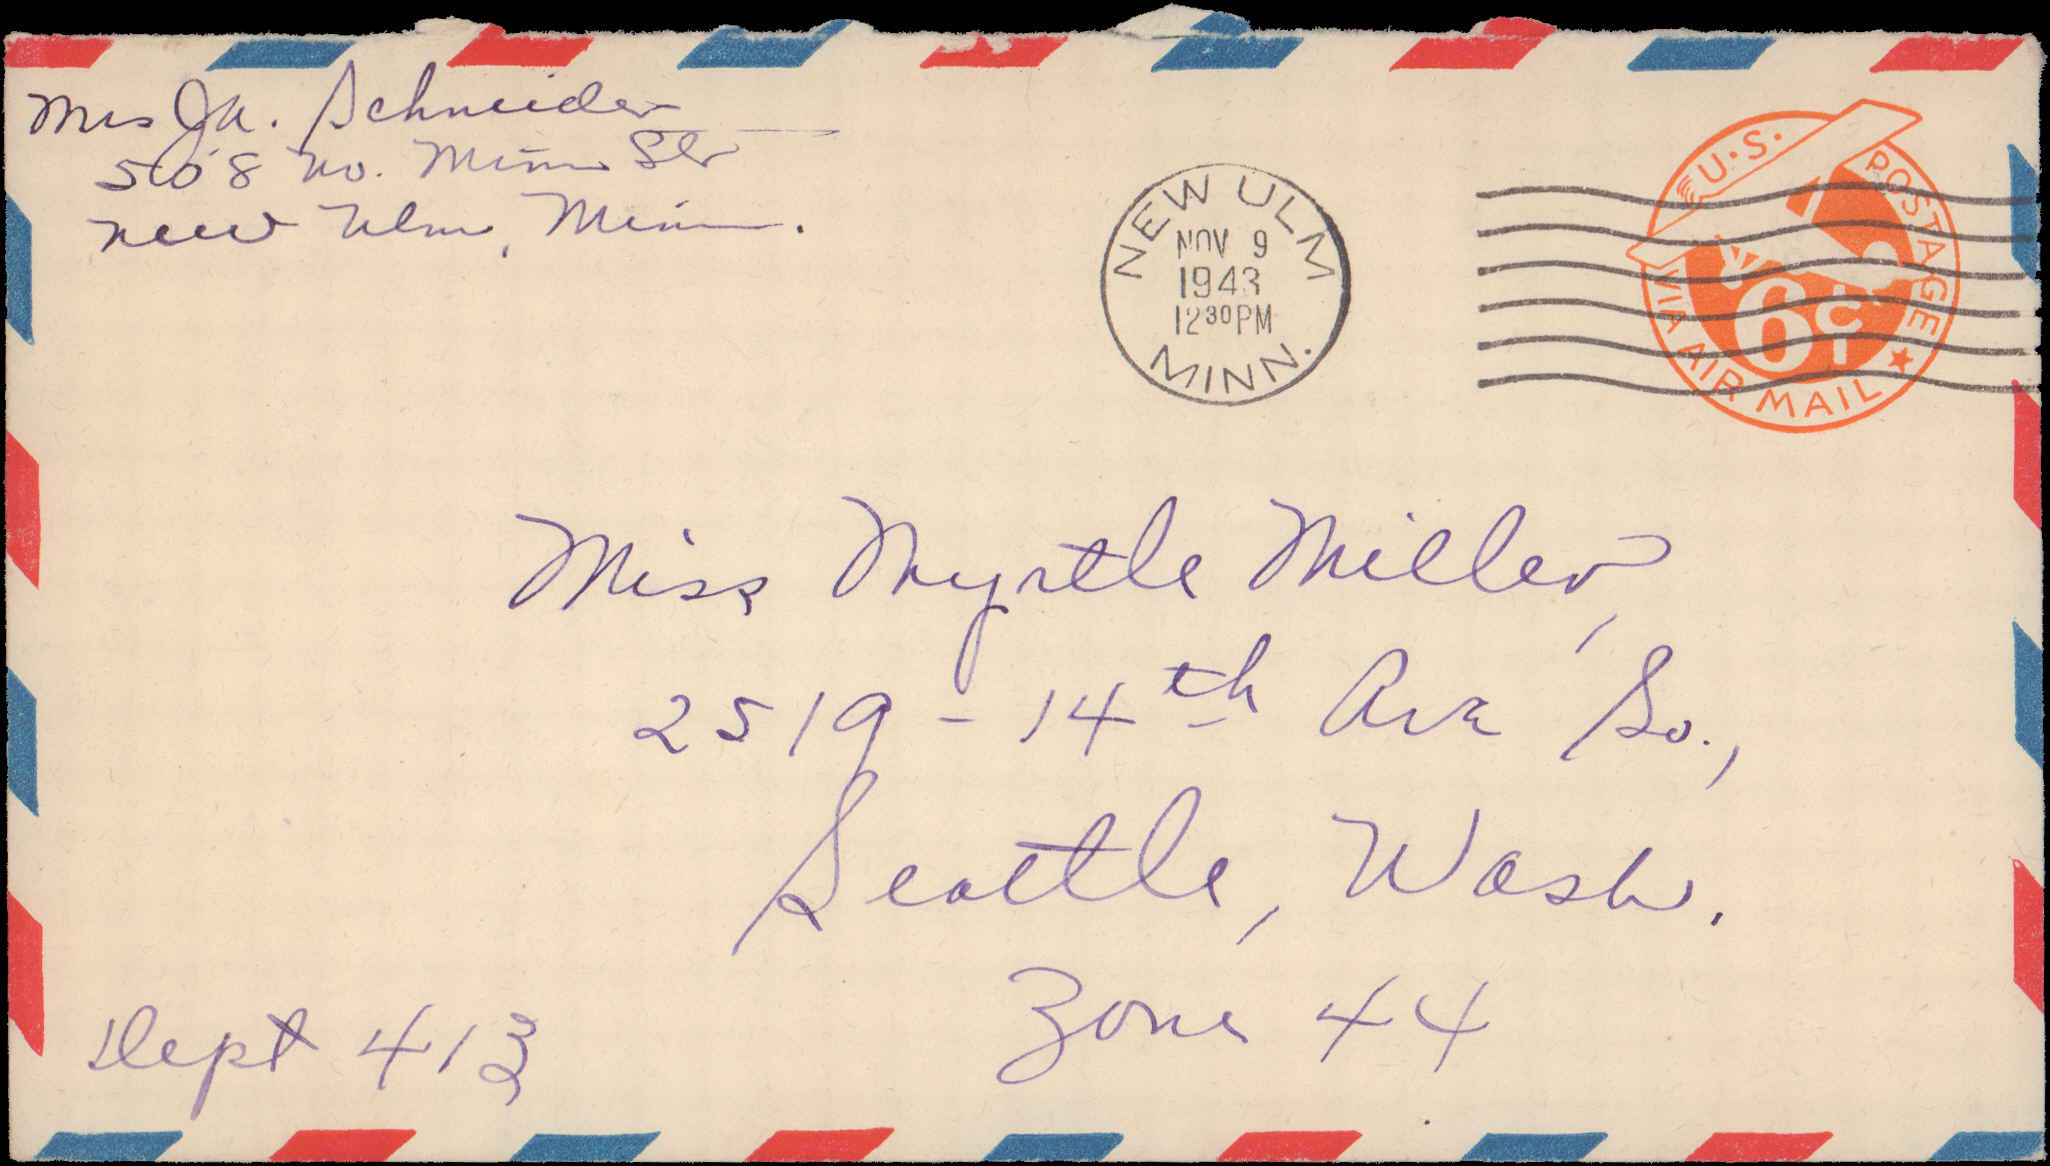 Mrs Ja. Schneider
508 No. Minn Str
New Ulm, Minn.
NEW ULM
NOV 9
1943
12 30 PM
MINN.
U.S. POSTAGE
6¢
VIA AIR MAIL
Miss Myrtle Miller,
2519 - 14th Ave So.,
Seattle, Wash.
Zone 44
Dept 413